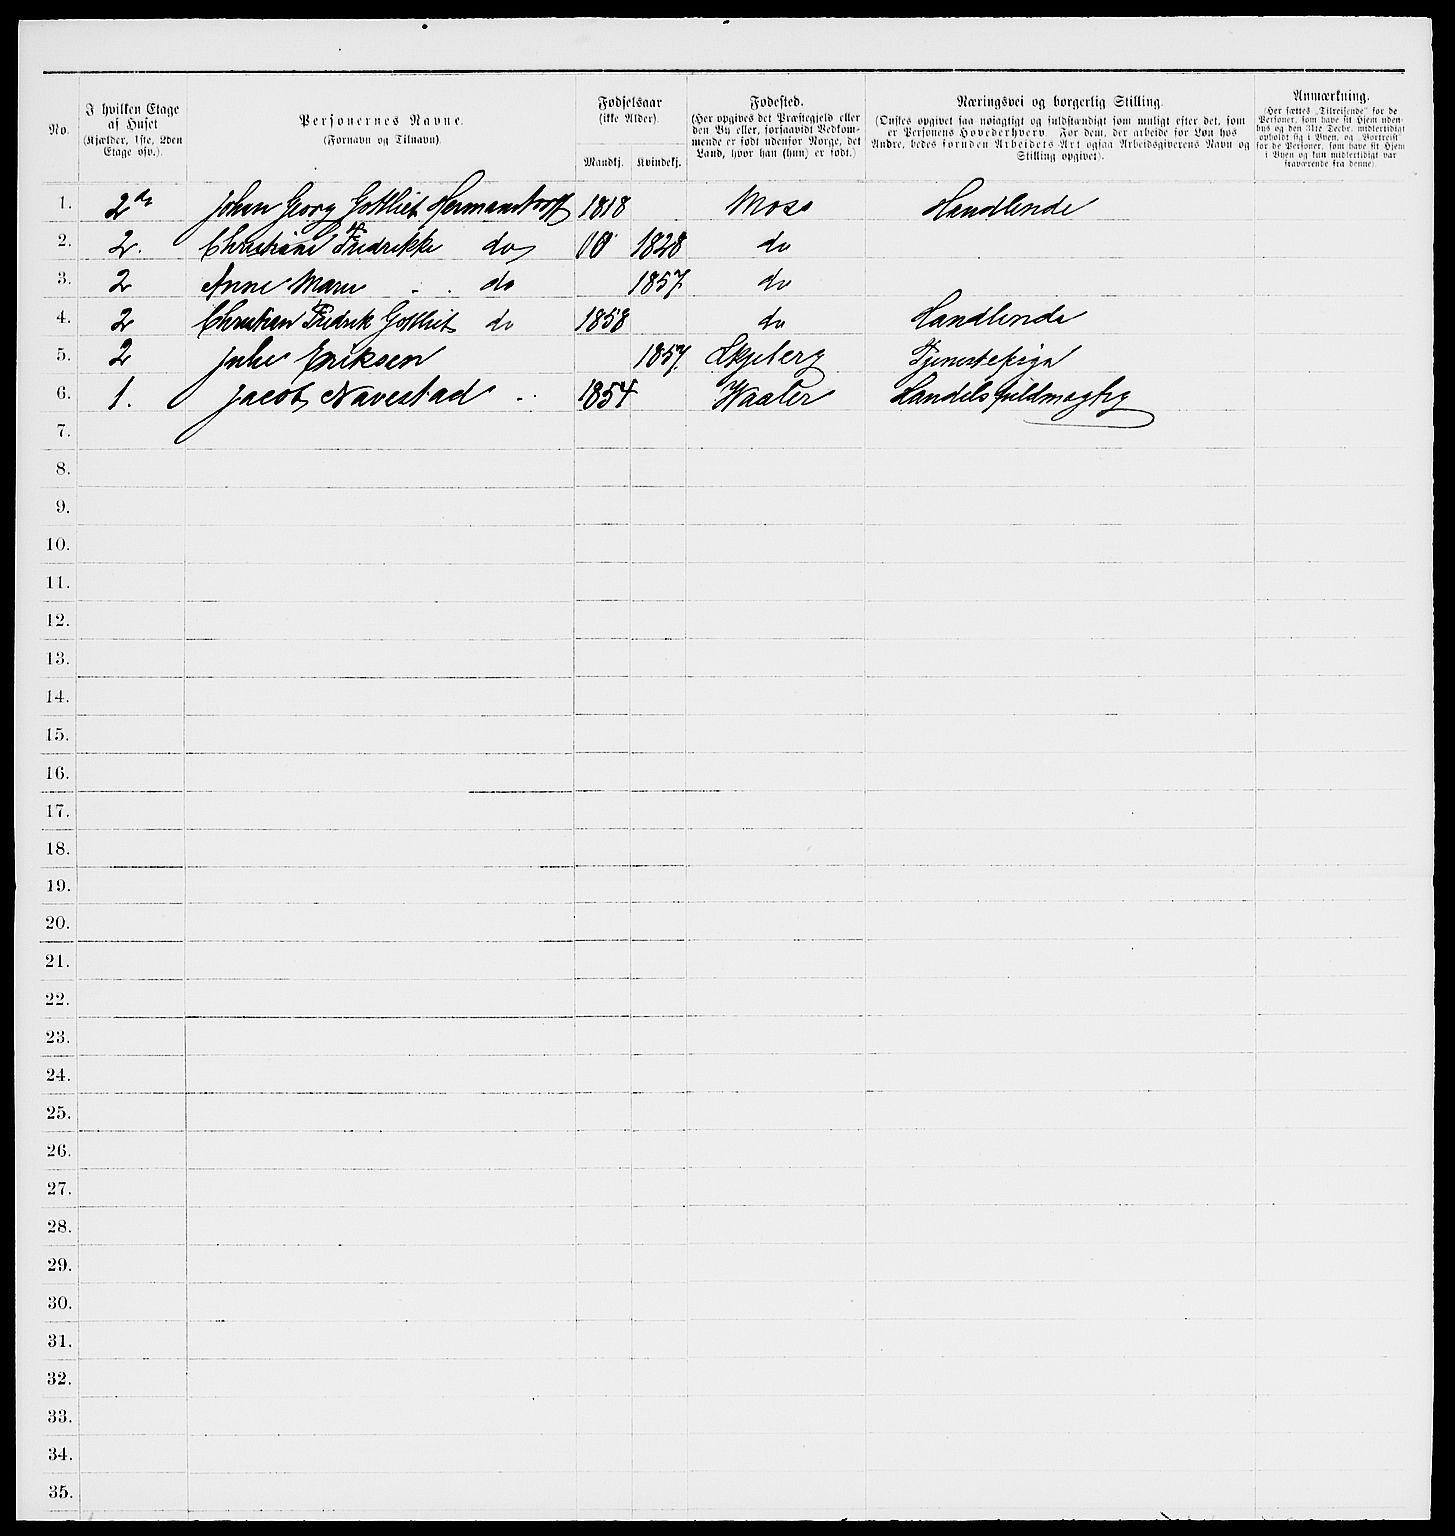 No.
I hvilken Etage af Huset (Kjælder, 1ste, 2den Etage osv.).
Personernes Navne. (Fornavn og Tilnavn)
Fødselsaar (ikke Alder).
Mandkj. Kvindekj.
Fødested. (Her opgives det Præstegjeld eller den By eller, forsaavidt Vedkommende er født udenfor Norge, det Land, hvor han (hun) er født.)
Næringsvei og borgerlig Stilling. (Ønskes opgivet saa nøiagtigt og fuldstændigt som muligt efter det, som er Personens Hovederhverv. For dem, der arbeide for Løn hos Andre, bedes foruden Arbeidets Art ogsaa Arbeidsgiverens Navn og Stilling opgivet).
Anmærkning. (Her sættes „Tilreisende“ for de Personer, som have sit Hjem udenbys og den 31te Decbr. midlertidigt opholdt sig i Byen, og „Bortreist“ for de Personer, som have sit Hjem i Byen og kun midlertidigt var fraværende fra denne).
1. 2den Johan Georg Gottlieb Hermanstorff 1818 Moss Handlende
2. 2. Christiane Fredrikke do 1828 do
3. 2 Anne Marie do 1857 do
4. 2 Christian Fredrik Gottlieb do 1858 do Handlende
5. 2 Julie Eriksen 1857 Skjeberg Tjenestepige
6. 1. Jacob Navestad 1854 Waaler Handelsfuldmægtig
7.
8.
9.
10.
11.
12.
13.
14.
15.
16.
17.
18.
19.
20.
21.
22.
23.
24.
25.
26.
27.
28.
29.
30.
31.
32.
33.
34.
35.